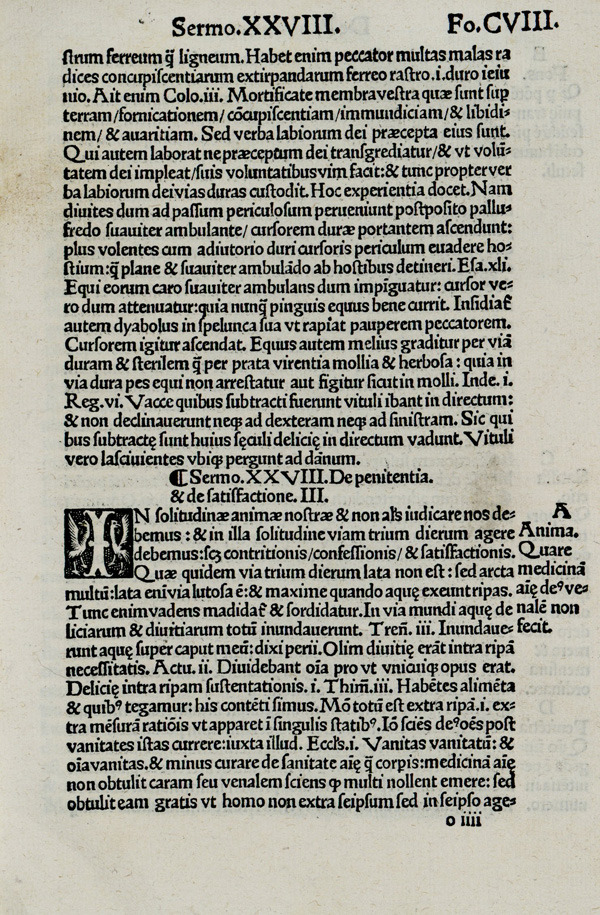 Sermo.XXVIII. Fo.CVIII.
strum ferreum q̃ ligneum. Habet enim peccator multas malas ra
dices concupiscentiarum extirpandarum ferreo rastro.i.duro ieiu
nio. Ait enim Colo.iii. Mortificate membra vestra quæ sunt sup
terram/fornicationem/ cõcupiscentiam/immundiciam/& libidi⸗
nem/& auaritiam. Sed verba labiorum dei præcepta eius sunt.
Qui autem laborat ne præceptum dei transgrediatur/& vt volũ⸗
tatem dei impleat/suis voluntatibus vim facit:& tunc propter ver
ba labiorum dei vias duras custodit. Hoc experientia docet. Nam
diuites dum ad passum periculosum perueniunt postposito pallu⸗
fredo suauiter ambulante/ cursorem duræ portantem ascendunt:
plus volentes cum adiutorio duri cursoris periculum euadere ho⸗
stium:q̃ plane & suauiter ambulãdo ab hostibus detineri. Esa.xli.
Equi eorum caro suauiter ambulans dum impĩguatur: cursor ve⸗
ro dum attenuatur:quia nunq̃ pinguis equus bene currit. Insidiaẽ
autem dyabolus in spelunca sua vt rapiat pauperem peccatorem.
Cursorem igitur ascendat. Equus autem melius graditur per viã
duram & sterilem q̃ per prata virentia mollia & herbosa : quia in
via dura pes equi non arrestatur aut figitur sicut in molli. Inde. i.
Reg.vi. Vacce quibus subtracti fuerunt vituli ibant in directum:
& non declinauerunt neqȝ ad dexteram neqȝ ad sinistram. Sic qui
bus subtractę sunt huius sęculi delicię in directum vadunt. Vituli
vero lasciuientes vbiqȝ pergunt ad dãnum.
¶ Sermo.XXVIII. De penitentia.
& de satisfactione. III.
IN solitudinæ animæ nostræ & non al̃s iudicare nos de⸗
bemus : & in illa solitudine viam trium dierum agere
debemus:scȝ contritionis/confessionis/& satisfactionis.
Quæ quidem via trium dierum lata non est : sed arcta
multũ:lata eni via lutosa ẽ:& maxime quando aquę exeunt ripas.
Tunc enim vadens madidaẽ & sordidatur. In via mundi aquę de
liciarum & diuitiarum totũ inundauerunt. Treñ. iii. Inundaue⸗
runt aquę super caput meũ: dixi perii. Olim diuitię erãt intra ripã
necessitatis. Actu. ii. Diuidebant oĩa pro vt vnicuiqȝ opus erat.
Delicię intra ripam sustentationis. i. Thiṁ.iii. Habẽtes alimẽta
& quibꝰ tegamur: his contẽti simus. Mõ totũ est extra ripã.i. ex⸗
tra mẽsurã ratiõis vt apparet ĩ singulis statibꝰ. Iõ sciẽs deꝰ oẽs post
vanitates istas currere:iuxta illud. Eccl̃s.i. Vanitas vanitatũ: &
oĩa vanitas.& minus curare de sanitate aĩę q̃ corpis:medicinã aĩę
non obtulit caram seu venalem sciens ꝙ multi nollent emere: sed
obtulit eam gratis vt homo non extra seipsum sed in seipso age⸗
o iiii
A
Anima.
Quare
medicinã
aĩę deꝰ ve⸗
nalẽ non
fecit.